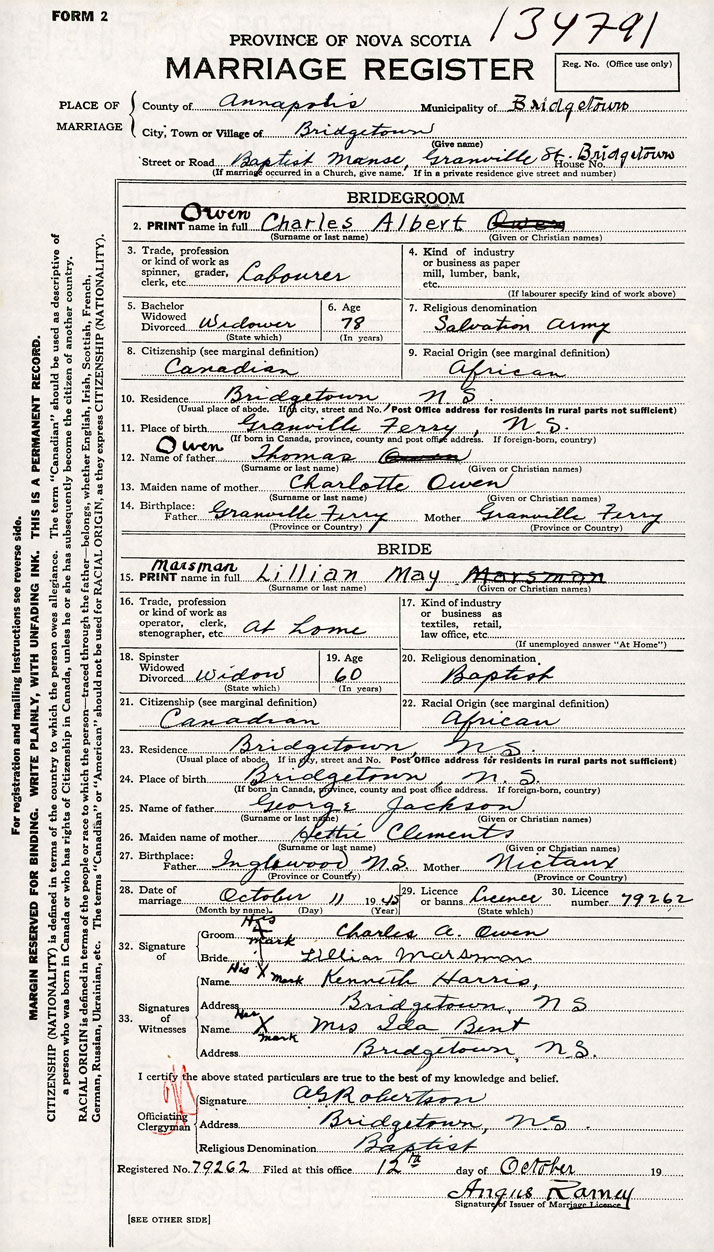 FORM 2
134791
PROVINCE OF NOVA SCOTIA
MARRIAGE REGISTER
Reg. No. (Office use only)
PLACE OF MARRIAGE
County of Annapolis Municipality of Bridgetown
City, Town or Village of Bridgetown
(Give name)
Street or Road Baptist Manse, Granville St. House No. Bridgetown
(If marriage occurred in a Church, give name. If in a private residence give street and number)
BRIDEGROOM
2. PRINT name in full Owen Charles Albert Owen
(Surname or last name) (Given or Christian names)
3. Trade, profession or kind of work as spinner, grader, clerk, etc. Labourer
4. Kind of industry or business as paper mill, lumber, bank, etc.
(If labourer specify kind of work above)
5. Bachelor Widowed Divorced Widower
(State which)
6. Age 78
(In years)
7. Religious denomination
Salvation Army
8. Citizenship (see marginal definition)
Canadian
9. Racial Origin (see marginal definition)
African
10. Residence Bridgetown N.S.
(Usual place of abode. If in city, street and No. Post Office address for residents in rural parts not sufficient)
11. Place of birth Granville Ferry, N.S.
(If born in Canada, province, county and post office address. If foreign-born, country)
12. Name of father Owen Thomas Owen
(Surname or last name) (Given or Christian names)
13. Maiden name of mother Charlotte Owen
(Surname or last name) (Given or Christian names)
14. Birthplace: Father Granville Ferry Mother Granville Ferry
(Province or Country) (Province or Country)
BRIDE
15. PRINT name in full Marsman Lillian May Marsman
(Surname or last name) (Given or Christian names)
16. Trade, profession or kind of work as operator, clerk, stenographer, etc. At home
17. Kind of industry or business as textiles, retail, law office, etc.
(If unemployed answer "At Home")
18. Spinster Widowed Divorced Widow
(State which)
19. Age 60
(In years)
20. Religious denomination
Baptist
21. Citizenship (see marginal definition)
Canadian
22. Racial Origin (see marginal definition)
African
23. Residence Bridgetown, N.S.
(Usual place of abode. If in city, street and No. Post Office address for residents in rural parts not sufficient)
24. Place of birth Bridgetown, N.S.
(If born in Canada, province, county and post office address. If foreign-born, country)
25. Name of father George Jackson
(Surname or last name) (Given or Christian names)
26. Maiden name of mother Hettie Clements
(Surname or last name) (Given or Christian names)
27. Birthplace: Father Inglewood, N.S. Mother Nictaux
(Province or Country) (Province or Country)
28. Date of marriage October 11 1945
(Month by name) (Day) (Year)
29. Licence or banns Licence
(State which)
30. Licence number 79262
32. Signature of
Groom His X mark Charles A. Owen
Bride Lillian Marsman
33. Signatures of Witnesses
Name His X Mark Kenneth Harris,
Address Bridgetown, N S
Name Her X mark Mrs Ida Bent
Address Bridgetown, N.S.
I certify the above stated particulars are true to the best of my knowledge and belief.
Officiating Clergyman
Signature A G Robertson
Address Bridgetown, N.S.
Religious Denomination Baptist
Registered No. 79262 Filed at this office 12th day of October 19
Angus Ramey
Signature of Issuer of Marriage Licence
[SEE OTHER SIDE]
For registration and mailing instructions see reverse side.
MARGIN RESERVED FOR BINDING. WRITE PLAINLY, WITH UNFADING INK. THIS IS A PERMANENT RECORD.
CITIZENSHIP (NATIONALITY) is defined in terms of the country to which the person owes allegiance. The term "Canadian" should be used as descriptive of
a person who was born in Canada or who has rights of Citizenship in Canada, unless he or she has subsequently become the citizen of another country.
RACIAL ORIGIN is defined in terms of the people or race to which the person—traced through the father—belongs, whether English, Irish, Scottish, French,
German, Russian, Ukrainian, etc. The terms "Canadian" or "American" should not be used for RACIAL ORIGIN, as they express CITIZENSHIP (NATIONALITY).